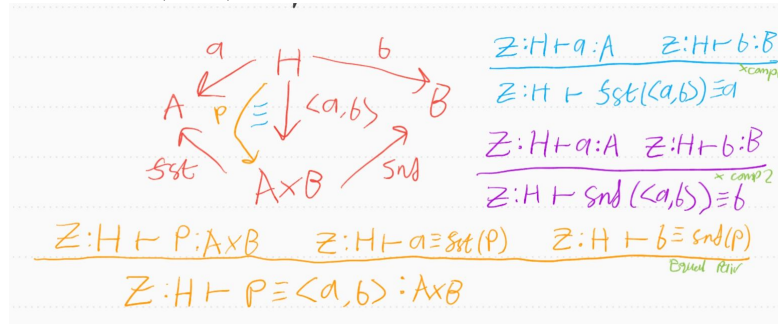 a H b
A P ≡ <a,b> B
fst A×B snd
Z:H⊢a:A Z:H⊢b:B
×comp
Z:H ⊢ fst(<a,b>)≡a
Z:H⊢a:A Z:H⊢b:B
× comp 2
Z:H⊢ snd(<a,b>)≡b
Z:H⊢ P:A×B Z:H⊢a≡fst(P) Z:H ⊢b≡ snd(p)
Equal Pair
Z:H⊢ P≡<a,b>:A×B